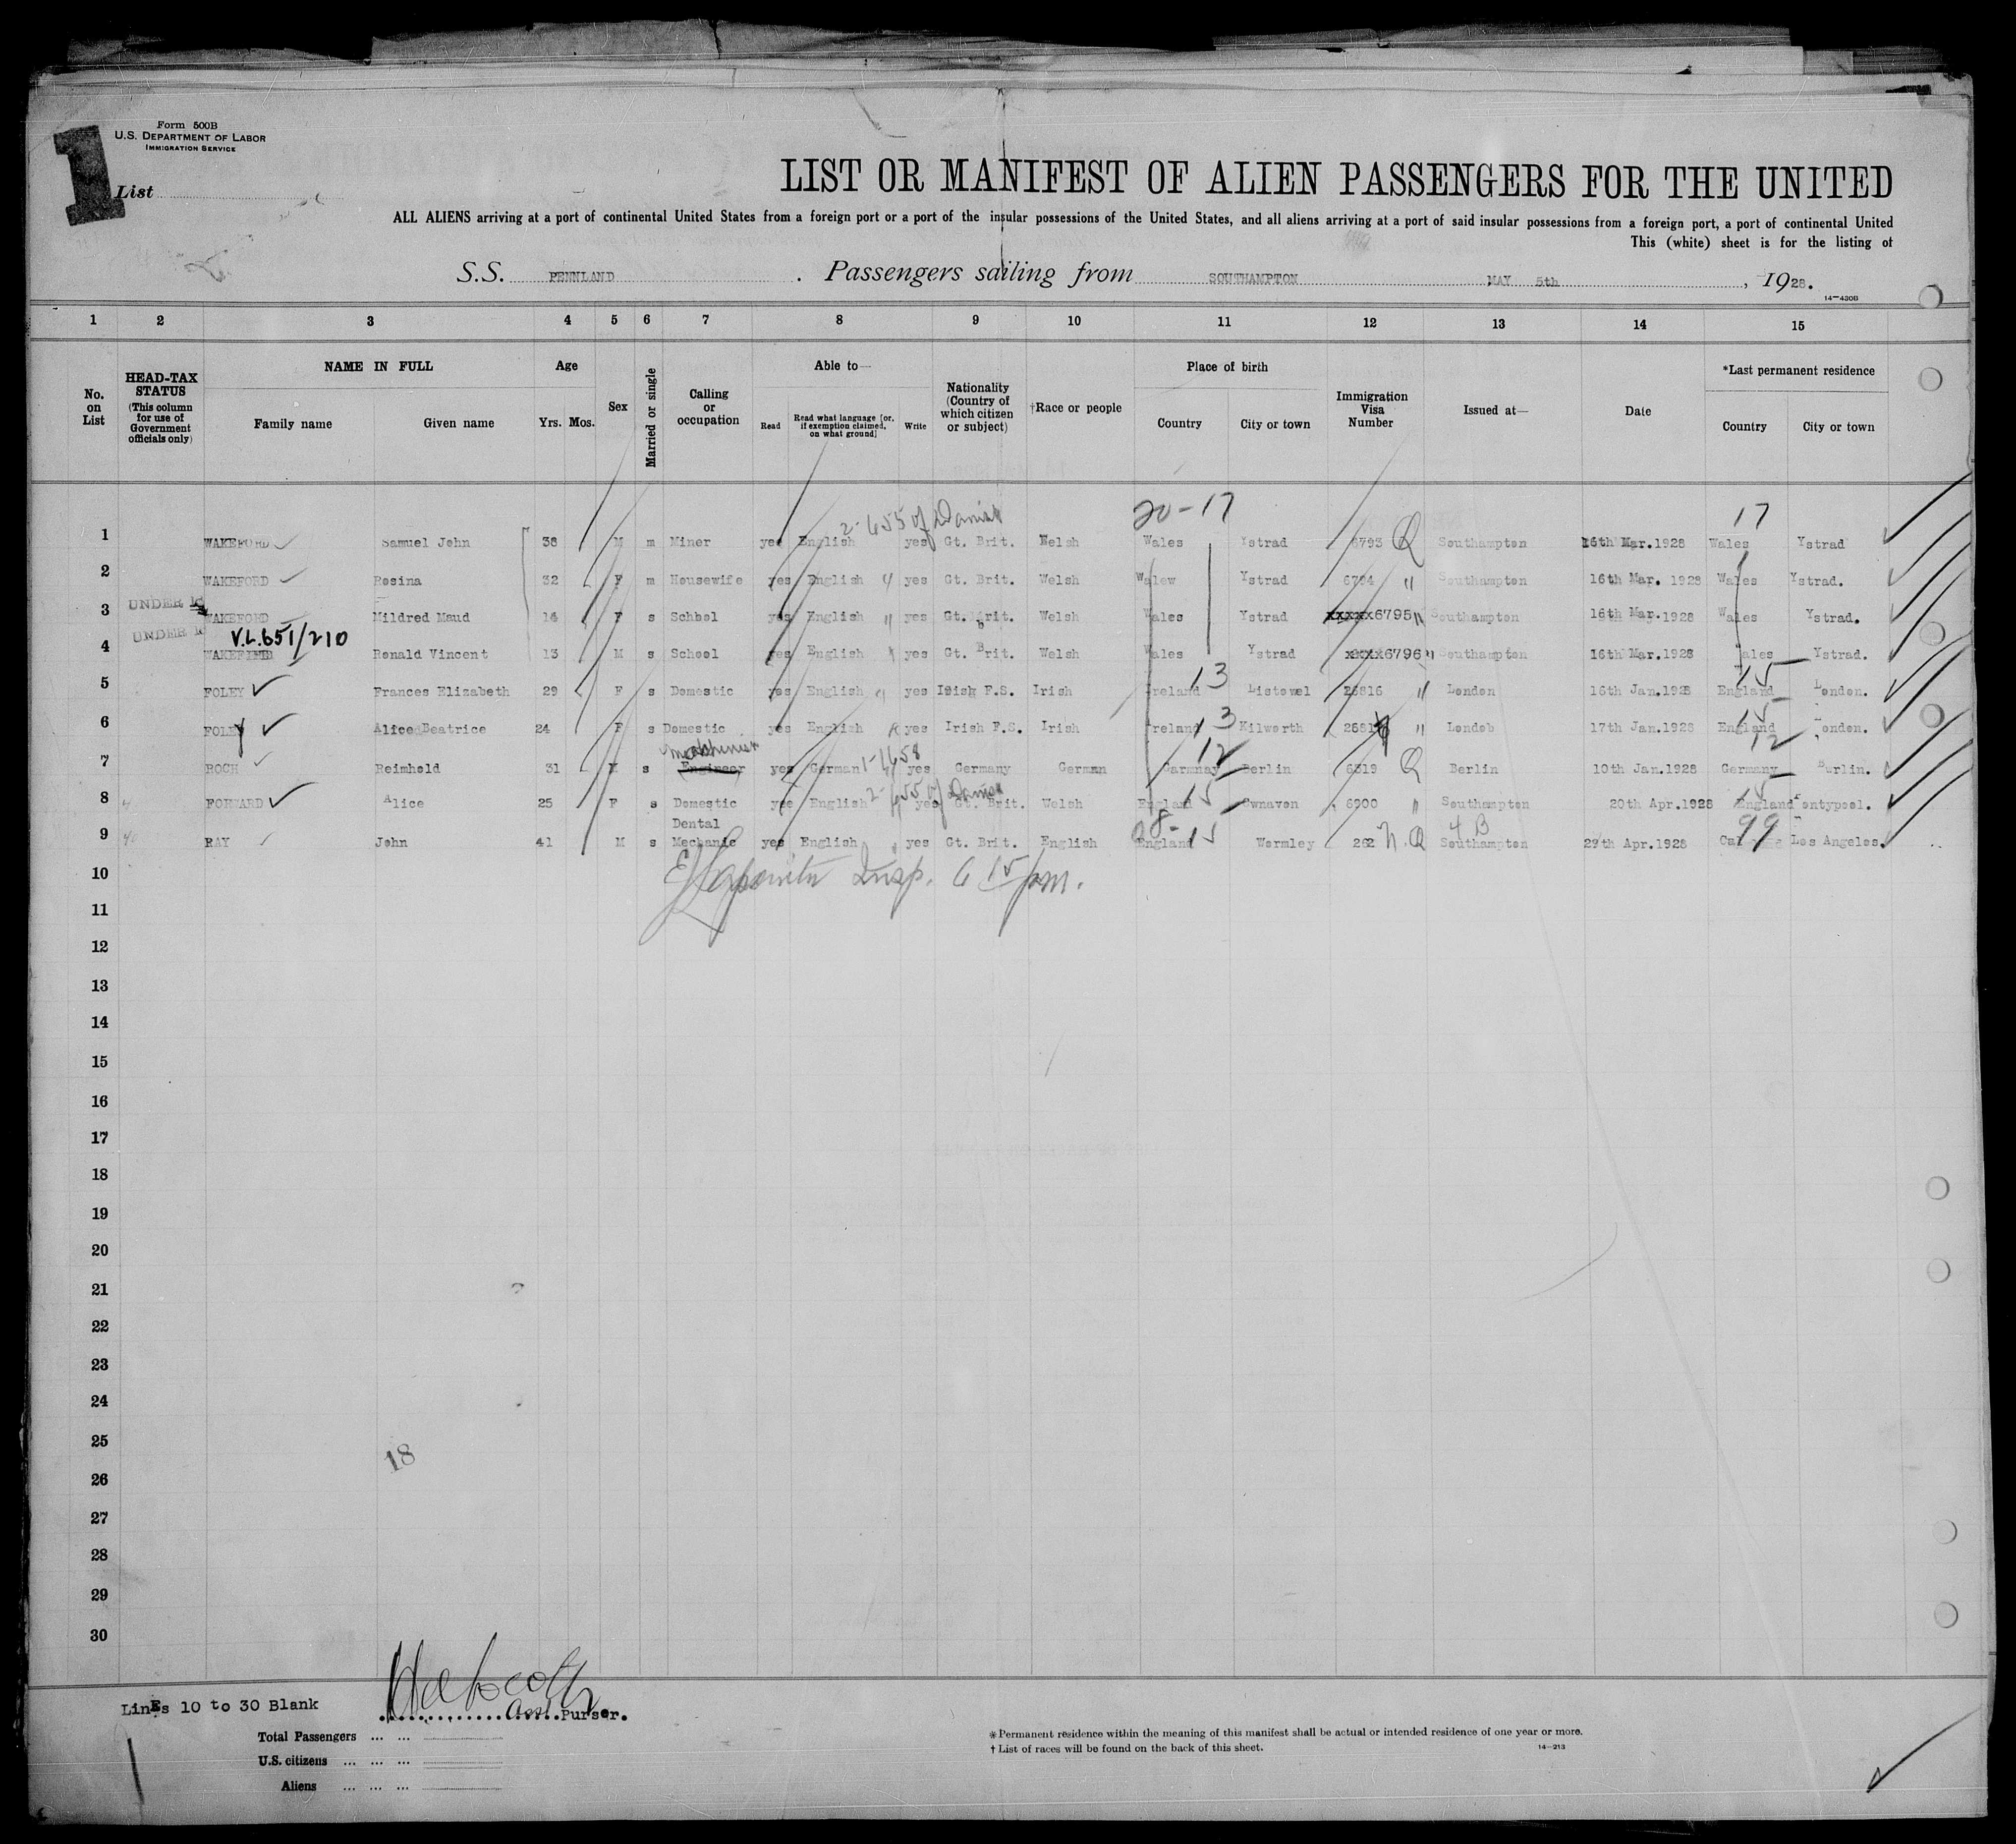 Form 500B
U.S. DEPARTMENT OF LABOR
IMMIGRATION SERVICE
1
List
LIST OR MANIFEST OF ALIEN PASSENGERS FOR THE UNITED
ALL ALIENS arriving at a port of continental United States from a foreign port or a port of the insular possessions of the United States, and all aliens arriving at a port of said insular possessions from a foreign port, a port of continental United
This (white) sheet is for the listing of
S.S. PENNLAND . Passengers sailing from SOUTHAMPTON MAY 5th , 1928.
14—430B
1 2 3 4 5 6 7 8 9 10 11 12 13 14 15
No. on List
HEAD-TAX STATUS (This column for use of Government officials only)
NAME IN FULL
Family name Given name
Age
Yrs. Mos.
Sex
Married or single
Calling or occupation
Able to—
Read Read what language [or, if exemption claimed, on what ground] Write
Nationality (Country of which citizen or subject)
†Race or people
Place of birth
Country City or town
Immigration Visa Number
Issued at—
Date
*Last permanent residence
Country City or town
2-655 of Danish 20-17 17
1 WAKEFORD Samuel John 38 M m Miner yes English yes Gt. Brit. Welsh Wales Ystrad 6793 Q Southampton 16th Mar.1928 Wales Ystrad
2 WAKEFORD Rosina 32 F m Housewife yes English " yes Gt. Brit. Welsh Walew Ystrad 6794 " Southampton 16th Mar. 1928 Wales Ystrad.
3 UNDER 16 WAKEFORD Mildred Maud 14 F s School yes English " yes Gt. Brit. Welsh Wales Ystrad xxxxx6795 " Southampton 16th Mar.1928 Wales Ystrad.
UNDER 16 V.L.651/210
4 Ronald Vincent 13 M s School yes English yes Gt. Brit. Welsh Wales Ystrad xxxx6796 " Southampton 16th Mar.1928 Wales Ystrad.
13 15
5 FOLEY Frances Elizabeth 29 F s Domestic yes English " yes Irish F.S. Irish Ireland Listowel 25816 " London 16th Jan.1928 England London.
13 15
6 FOLEY Alice Beatrice 24 F s Domestic yes English yes Irish F.S. Irish Ireland Kilworth " Londob 17th Jan.1928 England London.
Machinist 1-1658 12 12
7 ROCH Reimhold 31 M s Engineer yes German yes Germany German Garmnay Berlin 6319 Q Berlin 10th Jan.1928 Germany Burlin.
2-655 of Danish 15 15
8 FORWARD Alice 25 F s Domestic yes English yes Gt. Brit. Welsh England Cwnavon 6900 " Southampton 20th Apr.1928 England Pontypool.
Dental 8-15 4.B 99
9 RAY John 41 M s Mechanic yes English " yes Gt. Brit. English England Wormley 262 N.Q Southampton 27th Apr.1928 Los Angeles.
10 Insp. 6 15 pm.
11
12
13
14
15
16
17
18
19
20
21
22
23
24
25
18
26
27
28
29
30
LinEs 10 to 30 Blank
Asst. Purser.
Total Passengers ... ...
U.S. citizens ... ... ...
Aliens ... ... ...
*Permanent residence within the meaning of this manifest shall be actual or intended residence of one year or more.
† List of races will be found on the back of this sheet.
14—213